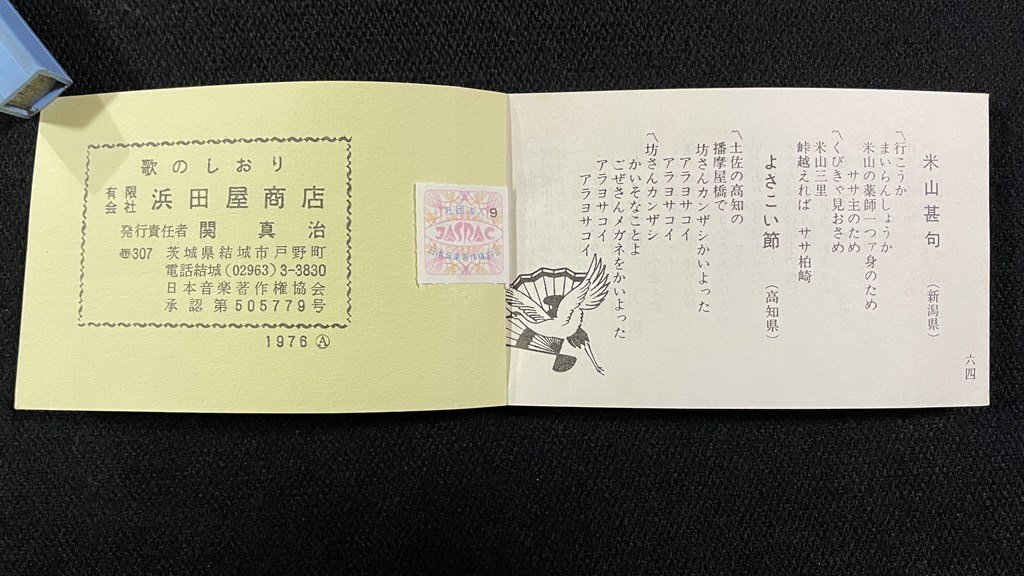 米山甚句　(新潟県)
〽行こうか
まいらんしょうか
米山の薬師一つァ身のため
ササ主のため
〽くびきゃ見おさめ
米山三里
峠越えれば　ササ柏崎
よさこい節　(高知県)
〽土佐の高知の
播摩屋橋で
坊さんカンザシかいよった
アラヨサコイ
アラヨサコイ
〽坊さんカンザシ
かいそなことよ
ごぜさんメガネをかいよった
アラヨサコイ
アラヨサコイ
六四
歌のしおり
有限会社 浜田屋商店
発行責任者 関真治
〠307 茨城県結城市戸野町
電話結城(02963)3-3830
日本音楽著作権協会
承認第505779号
1976 Ⓐ
社団法人 9
JASRAC
日本音楽著作権協会